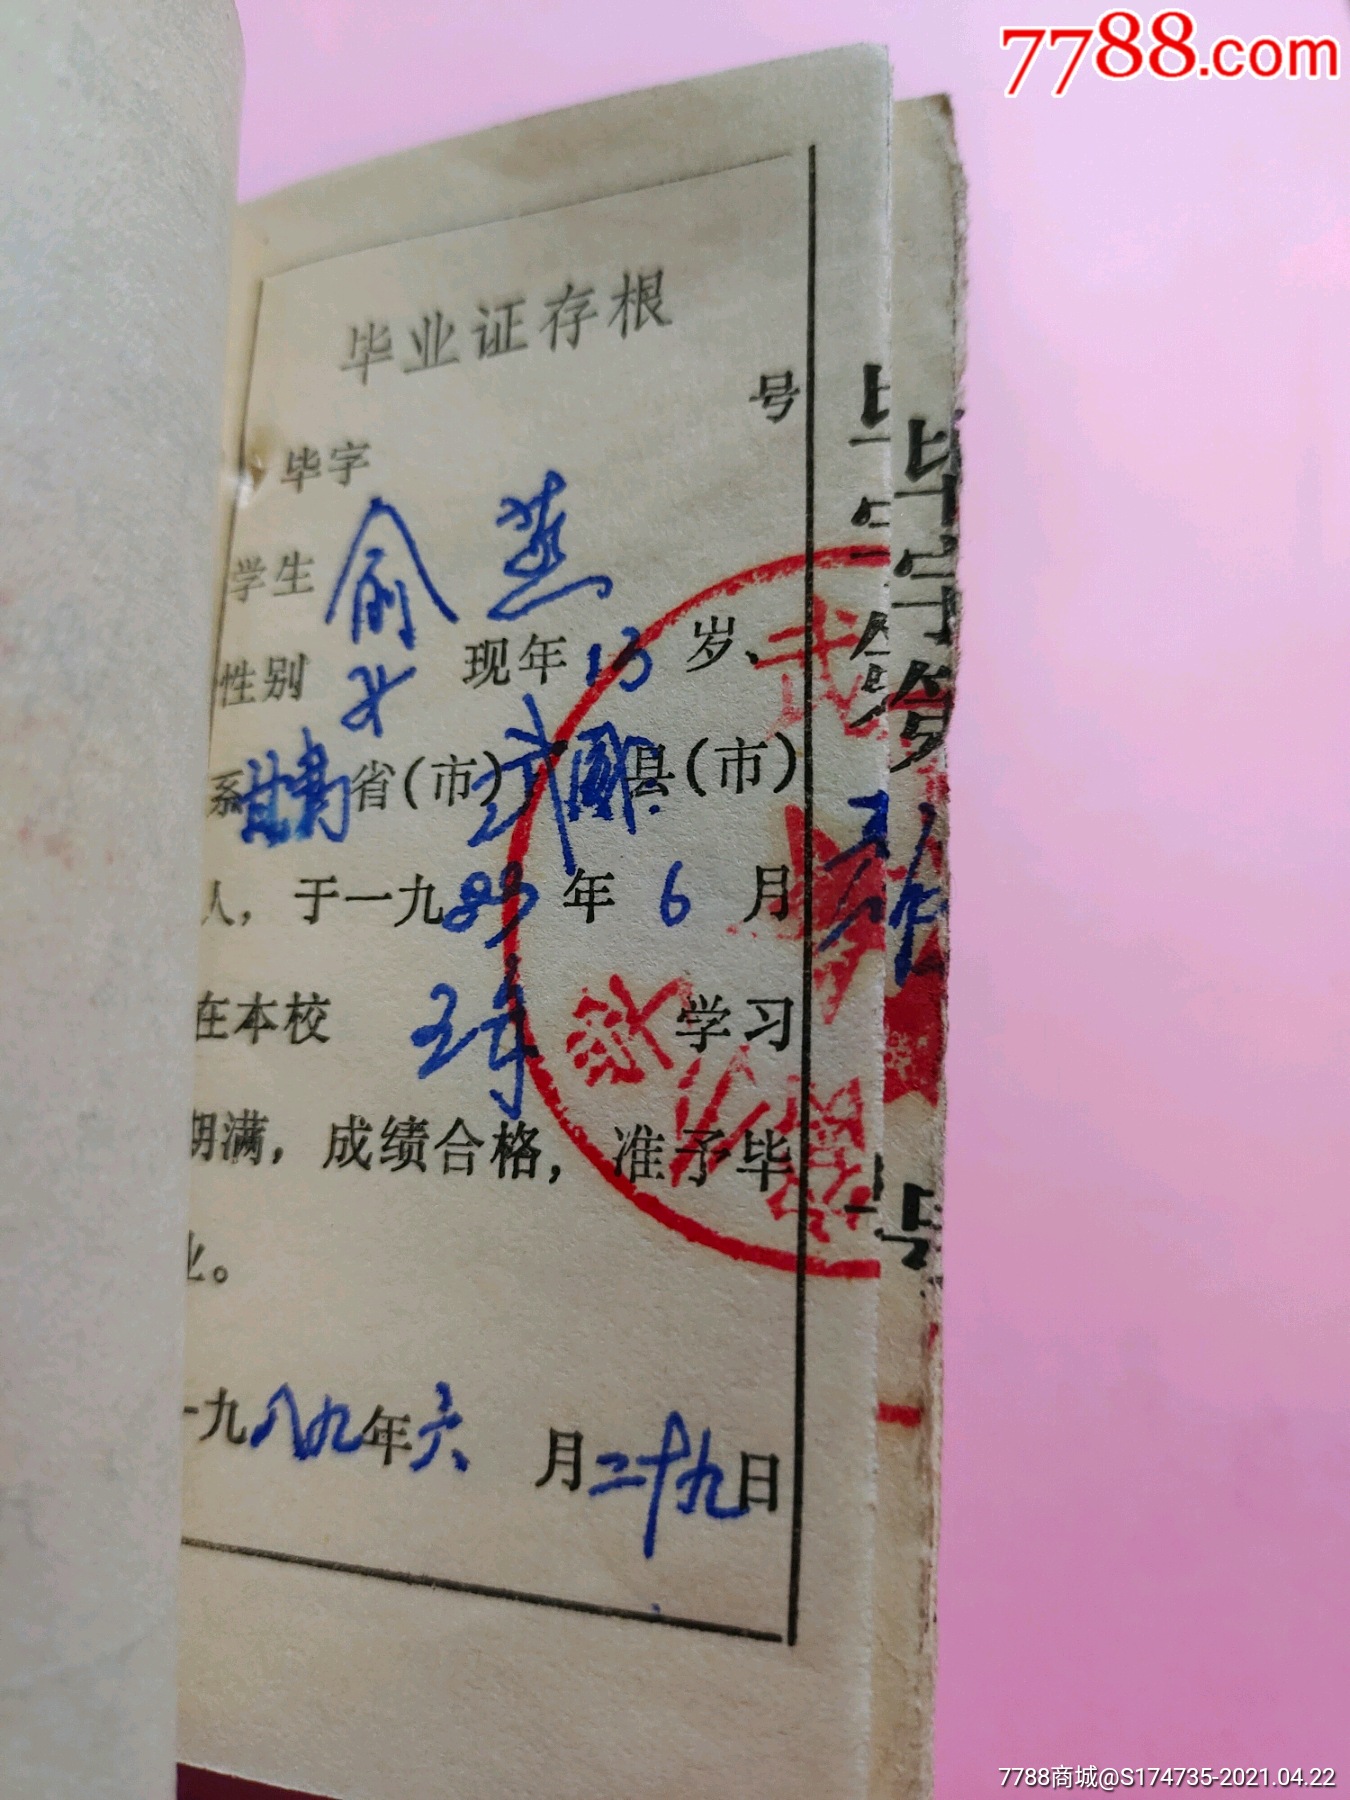 7788.com
毕业证存根
毕字 号
学生 俞燕
性别 女 现年13岁、
系甘肃省(市)武威县(市)
人，于一九89年6月
在本校 五年 学习
期满，成绩合格，准予毕
业。
一九八九年六月二十九日
毕字第
号
7788商城@S174735-2021.04.22